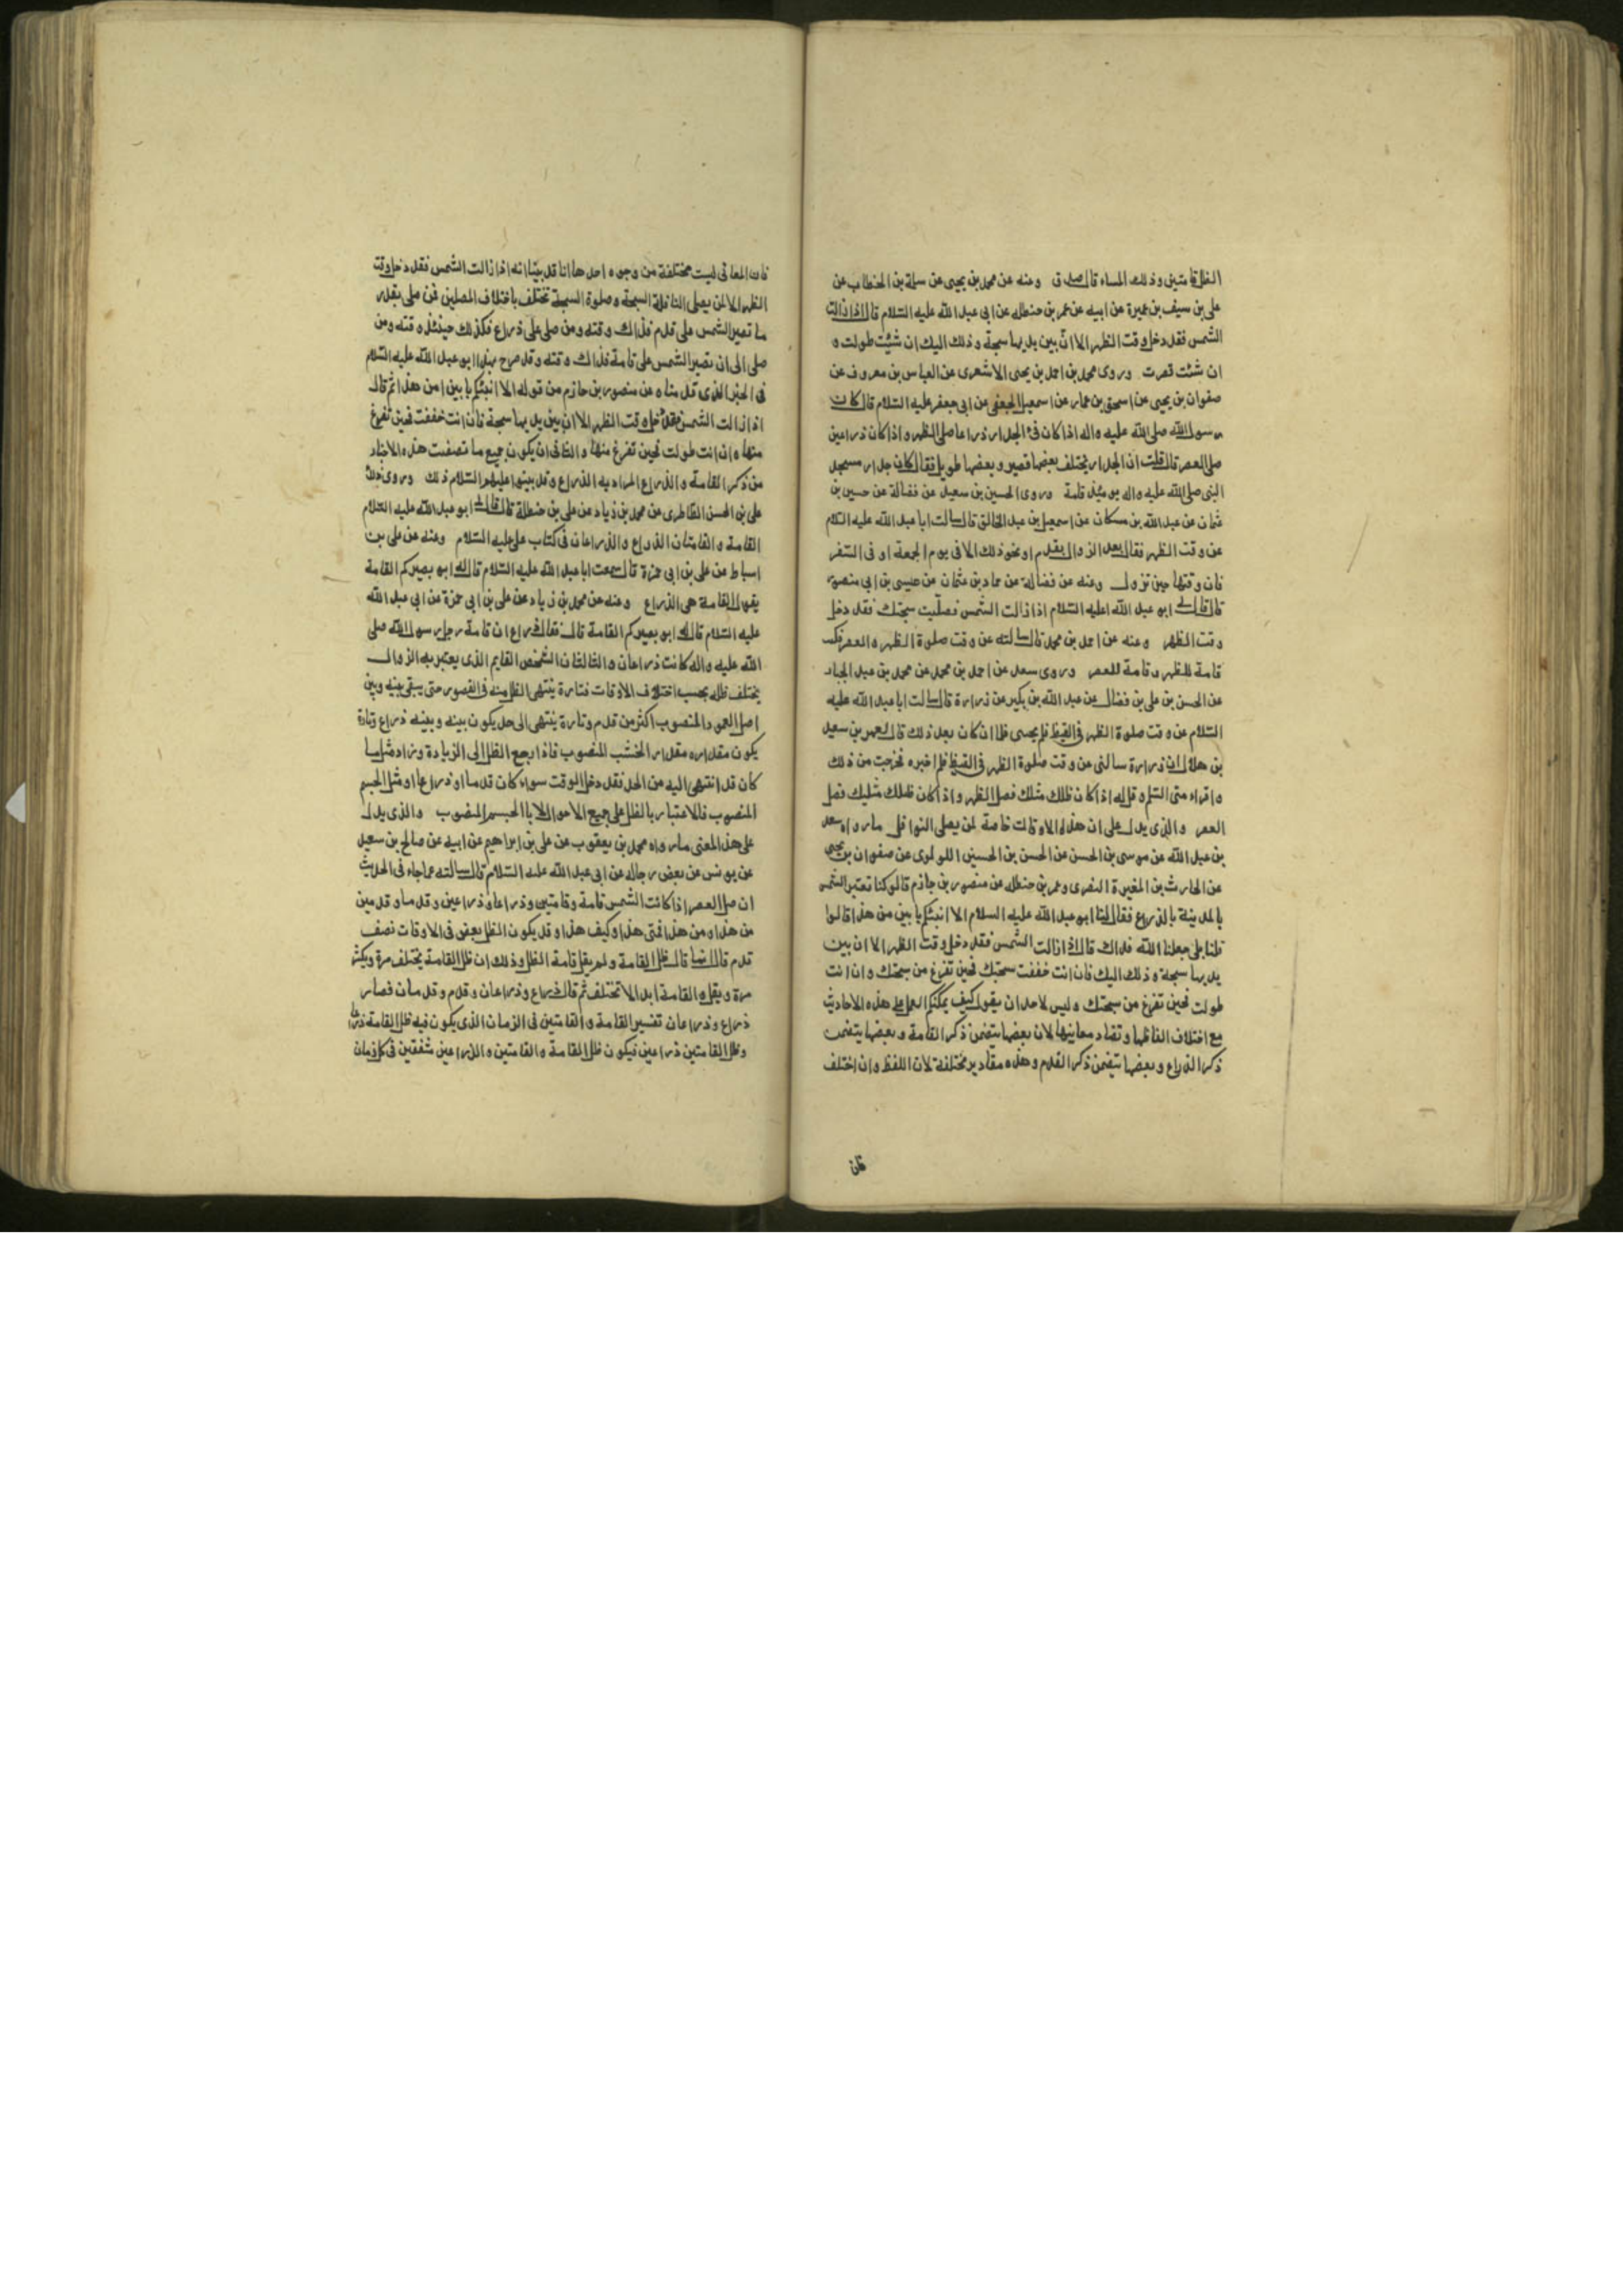 الظل قامتين وذلك المساء قال صدق وعنه عن محمد بن يحيى عن سلمة بن الخطاب عن
على بن سيف بن عميرة عن ابيه عن عمر بن حنظله عن ابى عبد الله عليه السّلام قال اذا زالت
الشمس فقد دخل وقت الظهر الا انّ بين يديها سبحة وذلك اليك ان شئت طولت و
ان شئت قصرت وروى محمد بن احمد بن يحيى الاشعرى عن العباس بن معروف عن
صفوان بن يحيى عن اسحق بن عمار عن اسمعيل الجعفى عن ابى جعفر عليه السّلام قال كان
رسول الله صلى الله عليه واله اذا كان فئ الجدار ذراعا صلى الظهر واذا كان ذراعين
صلى العصر قال قلت ان الجدار يختلف بعضها قصير وبعضها طويل فقال كان جدار مسجد
النبى صلى الله عليه واله يومئذ قامة وروى الحسين بن سعيد عن فضالة عن حسين بن
عثمان عن عبد الله بن مسكان عن اسمعيل بن عبد الخالق قال سالت ابا عبد الله عليه السّلام
عن وقت الظهر فقال بعد الزوال بقدم او نحو ذلك الا فى يوم الجمعة او فى السّفر
فان وقتها حين تزول وعنه عن فضالة عن حماد بن عثمان عن عيسى بن ابى منصور
قال قال لى ابو عبد الله عليه السّلام اذا زالت الشمس فصلّيت سبحتك فقد دخل
وقت الظهر وعنه عن احمد بن محمد قال سالته عن وقت صلوة الظهر والعصر فكتب
قامة للظهر وقامة للعصر وروى سعد عن احمد بن محمد عن محمد بن عبد الجبار
عن الحسن بن على بن فضال عن عبد الله بن بكير عن زرارة قال سالت ابا عبد الله عليه
السّلام عن وقت صلوة الظهر فى القيظ فلم يجبنى فلما ان كان بعد ذلك قال لعمر بن سعيد
بن هلال ان زرارة سالنى عن وقت صلوة الظهر فى القيظ فلم اخبره فخرجت من ذلك
واقراه منى السّلم وقل له اذا كان ظلك مثلك فصل الظهر واذا كان ظلك مثليك فصل
العصر والذى يدل على ان هذه الاوقات خاصة لمن يصلى النوافل ما رواه سعد
بن عبد الله عن موسى بن الحسن عن الحسن بن الحسين اللولوى عن صفوان بن يحيى
عن الحارث بن المغيرة النضرى وعمر بن حنظله عن منصور بن حازم قالو كنا نعتبر الشمس
بالمدينة بالذراع فقال لنا ابو عبد الله عليه السلام الا انبئكم بابين من هذا قالوا
قلنا بلى جعلنا الله فداك قال اذا زالت الشمس فقد دخل وقت الظهر الا ان بين
يديها سبحة وذلك اليك فان انت خففت سبحتك فحين تفرغ من سبحتك وان انت
طولت فحين تفرغ من سبحتك وليس لاحد ان يقول كيف يمكنكم العمل على هذه الاحاديث
مع اختلاف الفاظها وتضاد معانيها لان بعضها يتضمن ذكر القامة وبعضها يتضمن
ذكر الذراع وبعضها يتضمن ذكر القدم وهذه مقادير مختلفة لان اللفظ وان اختلف
فان
فان المعانى ليست مختلفة من وجوه احدها انا قد بيّنا انه اذا زالت الشمس فقد دخل وقت
الظهر الا لمن يصلى النافلة السبحة وصلوة السبحة تختلف باختلاف المصلين فمن صلى بقدر
ما تصير الشمس على قدم فذاك وقته ومن صلى على ذراع فكذلك حينئذ وقته ومن
صلى الى ان تصير الشمس على قامة فذاك وقته وقد صرح بهذا ابو عبد الله عليه السّلام
فى الخبر الذى قدمناه عن منصور بن حازم من قوله الا انبئكم بابين من هذا ثم قال
اذا زالت الشمس فقد دخل وقت الظهر الا ان بين يديها سبحة فان انت خففت فحين تفرغ
منها وان انت طولت فحين تفرغ منها والثانى ان يكون جميع ما تضمنت هذه الاخبار
من ذكر القامة والذراع المراد به الذراع وقد بينوا عليهم السّلام ذلك وروى ذلك
على بن الحسن الطاطرى عن محمد بن زياد عن على بن حنظلة قال قال لى ابو عبد الله عليه السّلام
القامة والقامتان الذراع والذراعان فى كتاب على عليه السّلام وعنه عن على بن
اسباط عن على بن ابى حمزة قال سمعت ابا عبد الله عليه السّلام قال له ابو بصير كم القامة
يقول القامة هى الذراع وعنه عن محمد بن زياد عن على بن ابى حمزة عن ابى عبد الله
عليه السّلام قال له ابو بصير كم القامة قال فقال ذراع ان قامة رحل رسول الله صلى
الله عليه واله كانت ذراعا والثالث ان الشخص القايم الذى يعتبر به الزوال
يختلف ظله بحسب اختلاف الاوقات فتارة ينتهى الظل منه فى القصور حتى يبقى بينه وبين
اصل العمود المنصوب اكثر من قدم وتارة ينتهى الى حد يكون بينه وبينه ذراع وتارة
يكون مقداره مقدار الخشب المنصوب فاذا رجع الظل الى الزيادة وزاد مثل ما
كان قد انتهى اليه من الحد فقد دخل الوقت سواء كان قدما او ذراعا او مثل الجسم
المنصوب فالاعتبار بالظل على جميع الاحوال لا بالجسم المنصوب والذى يدل
على هذا المعنى ما رواه محمد بن يعقوب عن على بن ابراهيم عن ابيه عن صالح بن سعيد
عن يونس عن بعض رجاله عن ابى عبد الله عليه السّلام قال سالته عما جاء فى الحديث
ان صل العصر اذا كانت الشمس قامة وقامتين وذراعا وذراعين وقدما وقدمين
من هذا ومن هذا فمتى هذا وكيف هذا وقد يكون الظل بعض فى الاوقات نصف
قدم قال انما قال ظل القامة ولم يقل قامة الظل وذلك ان ظل القامة يختلف مرة ويكثر
مرة ويقل والقامة ابدا لا تختلف ثم قال ذراع وذراعان وقدم وقدمان فصار
ذراع وذراعان تفسير القامة والقامتين فى الزمان الذى يكون فيه ظل القامة ذراعا
وظل القامتين ذراعين فيكون ظل القامة والقامتين والذراعين متفقين فى كل زمان